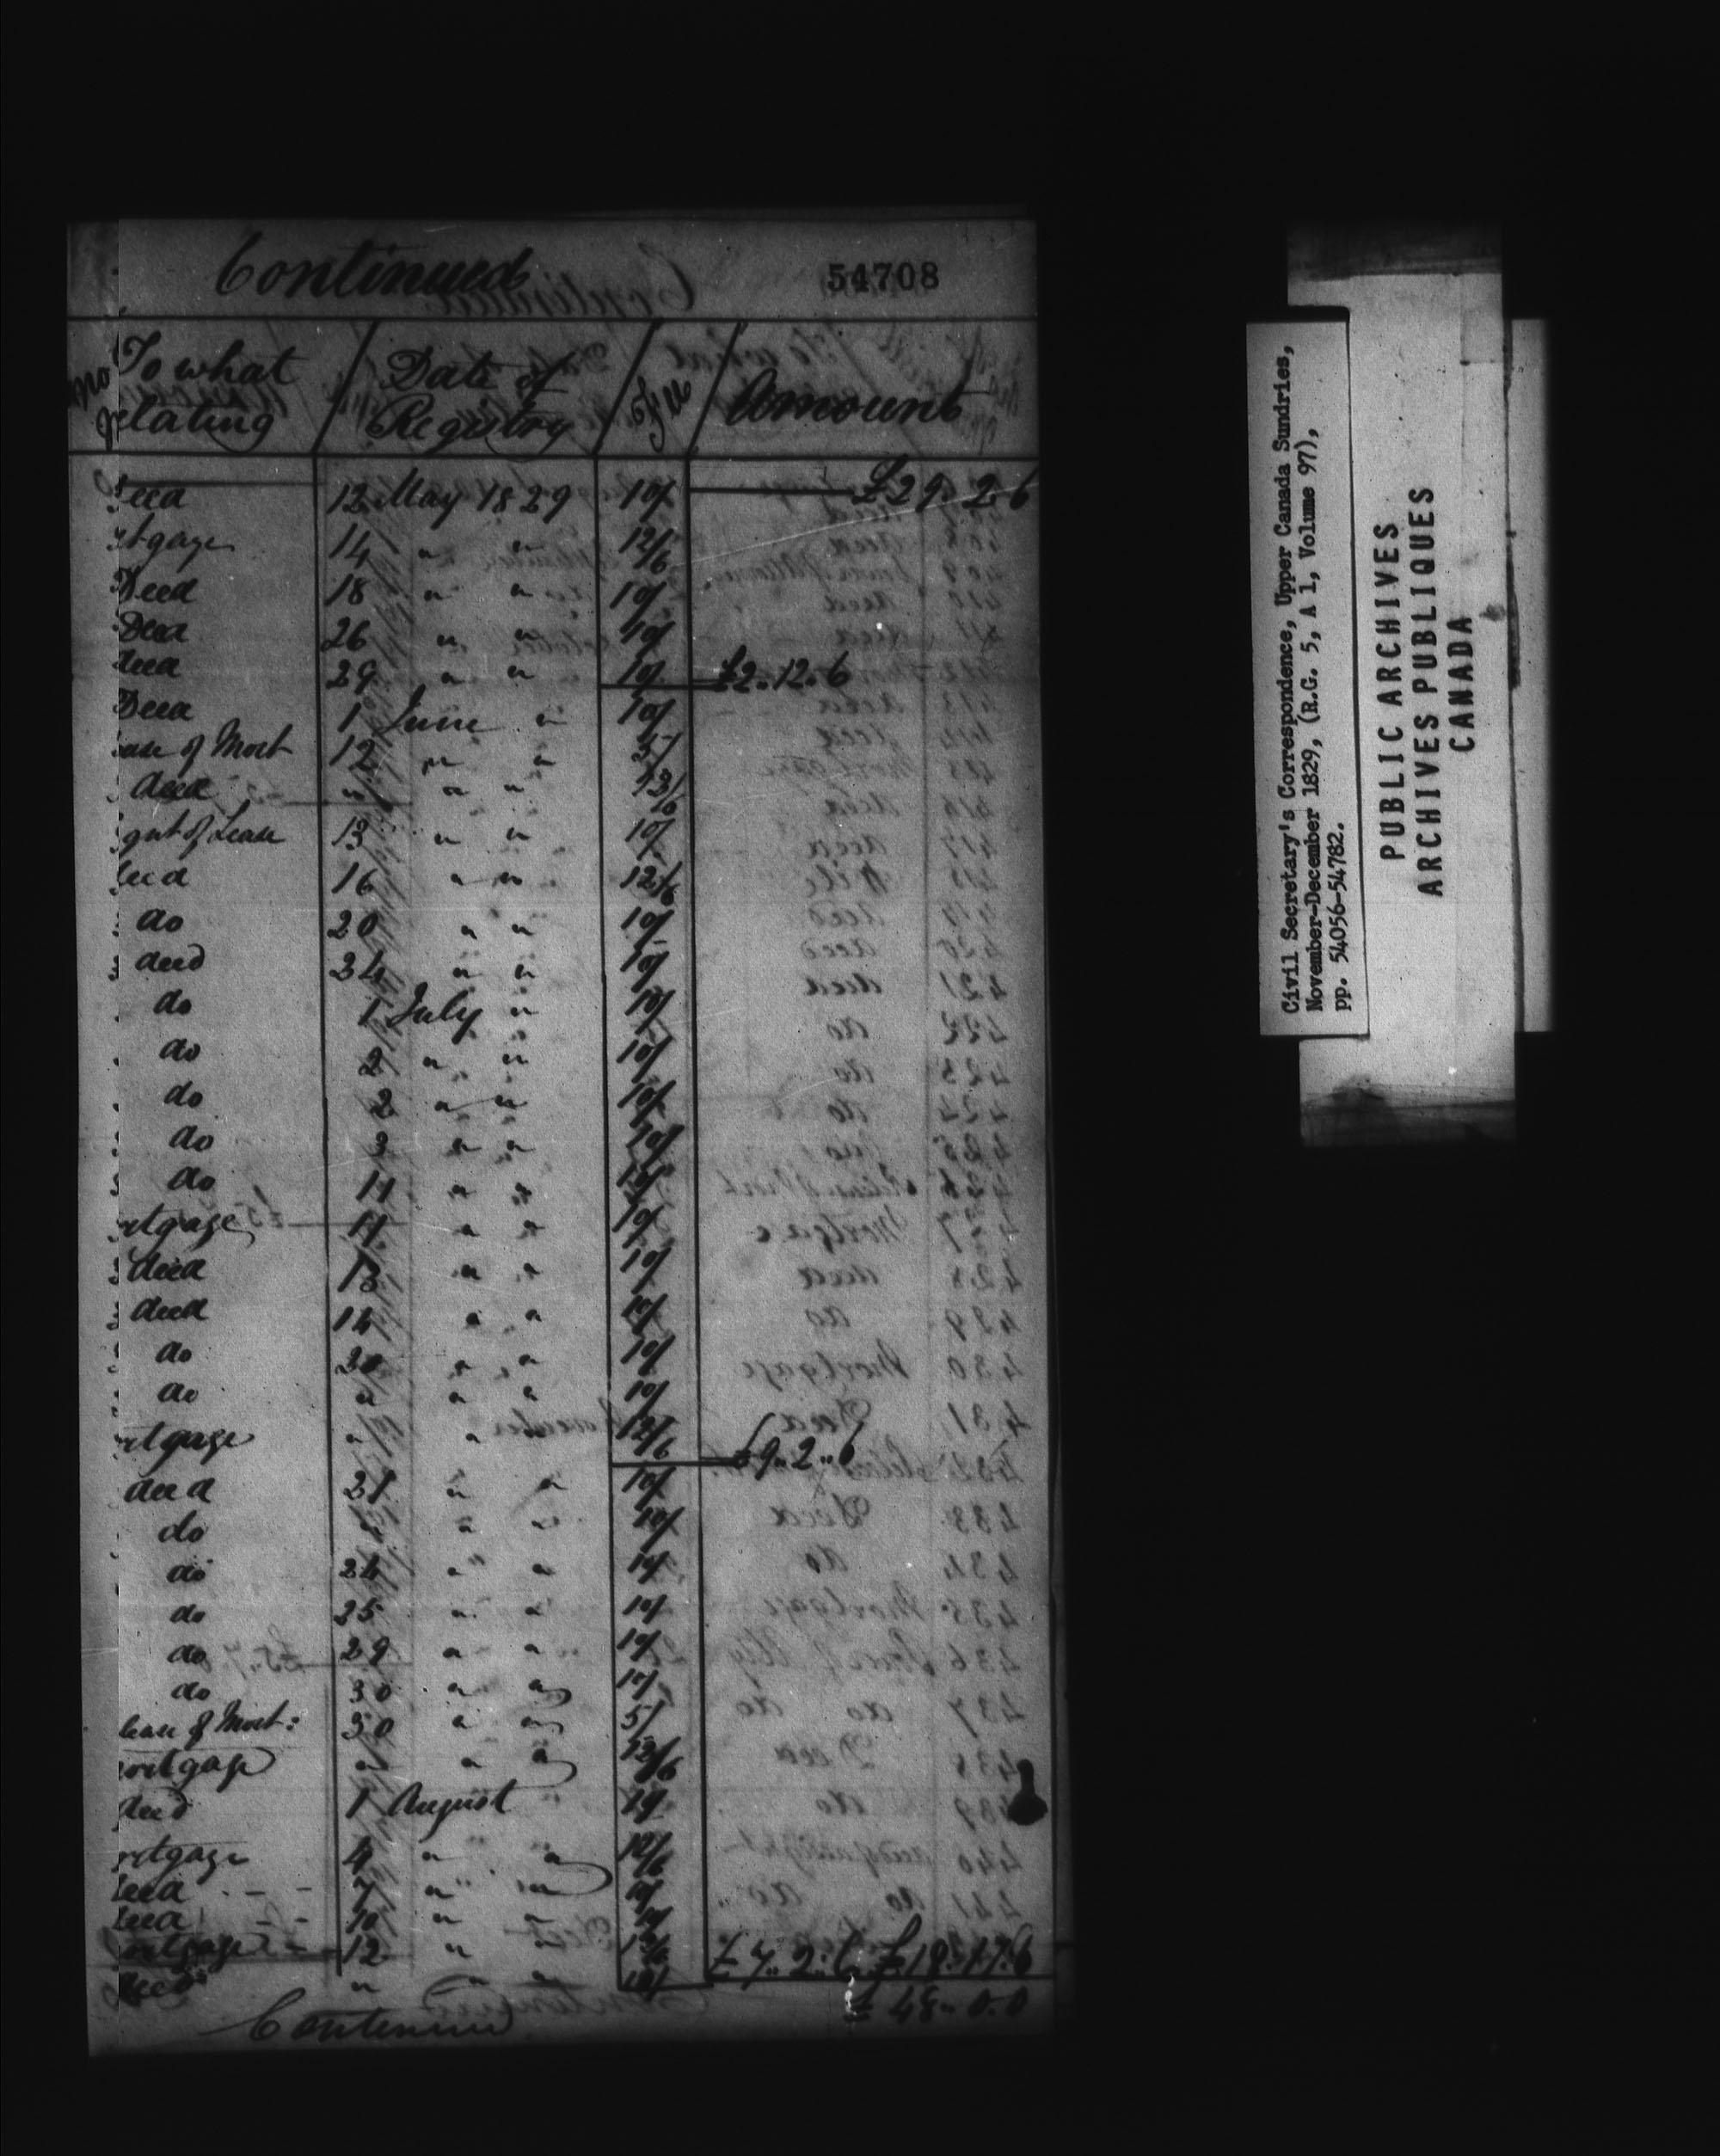 Continued
54708
To what
elating
Date of
Registry
Amount
Deed 12 May 1829 10/ £29.. 2.. 6
rtgage 14 " " 12/6
Deed 18 " " 10/
Deed 26 " " 10/
deed 29 " " 10/ £2.. 12.. 6
Deed 1 June " 10/
ease of Mort 12 " " 5/
deed " " " 12/6
gnt of Lease 13 " " 10/
deed 16 " " 12/6
do 20 " " 10/
deed 24 " " 10/
do 1 July " 10/
do 2 " " 10/
do 2 " " 10/
do 3 " " 10/
do 11 " " 10/
rtgage 11 " " 10/
deed 13 " " 10/
deed 14 " " 10/
do 20 " " 10/
do " " " 10/
rtgage " " 12/6 £9.. 2.. 6
deed 21 " " 10/
do " " " 10/
do 24 " " 10/
do 25 " " 10/
do 29 " " 10/
do 30 " " 10/
lease of Mort: 30 " " 5/
ortgage " " " 12/6
deed 1 August " 10/
rtgage 4 " " 12/6
deed - - 7 " " 10/
deed - - 10 " " 10/
ortgage - 12 " " 12/6 £7.. 2.. 6 £18.. 17.. 6
deed " " " 10/
£48.. 0.. 0
Continued
Civil Secretary's Correspondence, Upper Canada Sundries,
November-December 1829, (R.G. 5, A 1, Volume 97),
pp. 54056-54782.
PUBLIC ARCHIVES
ARCHIVES PUBLIQUES
CANADA